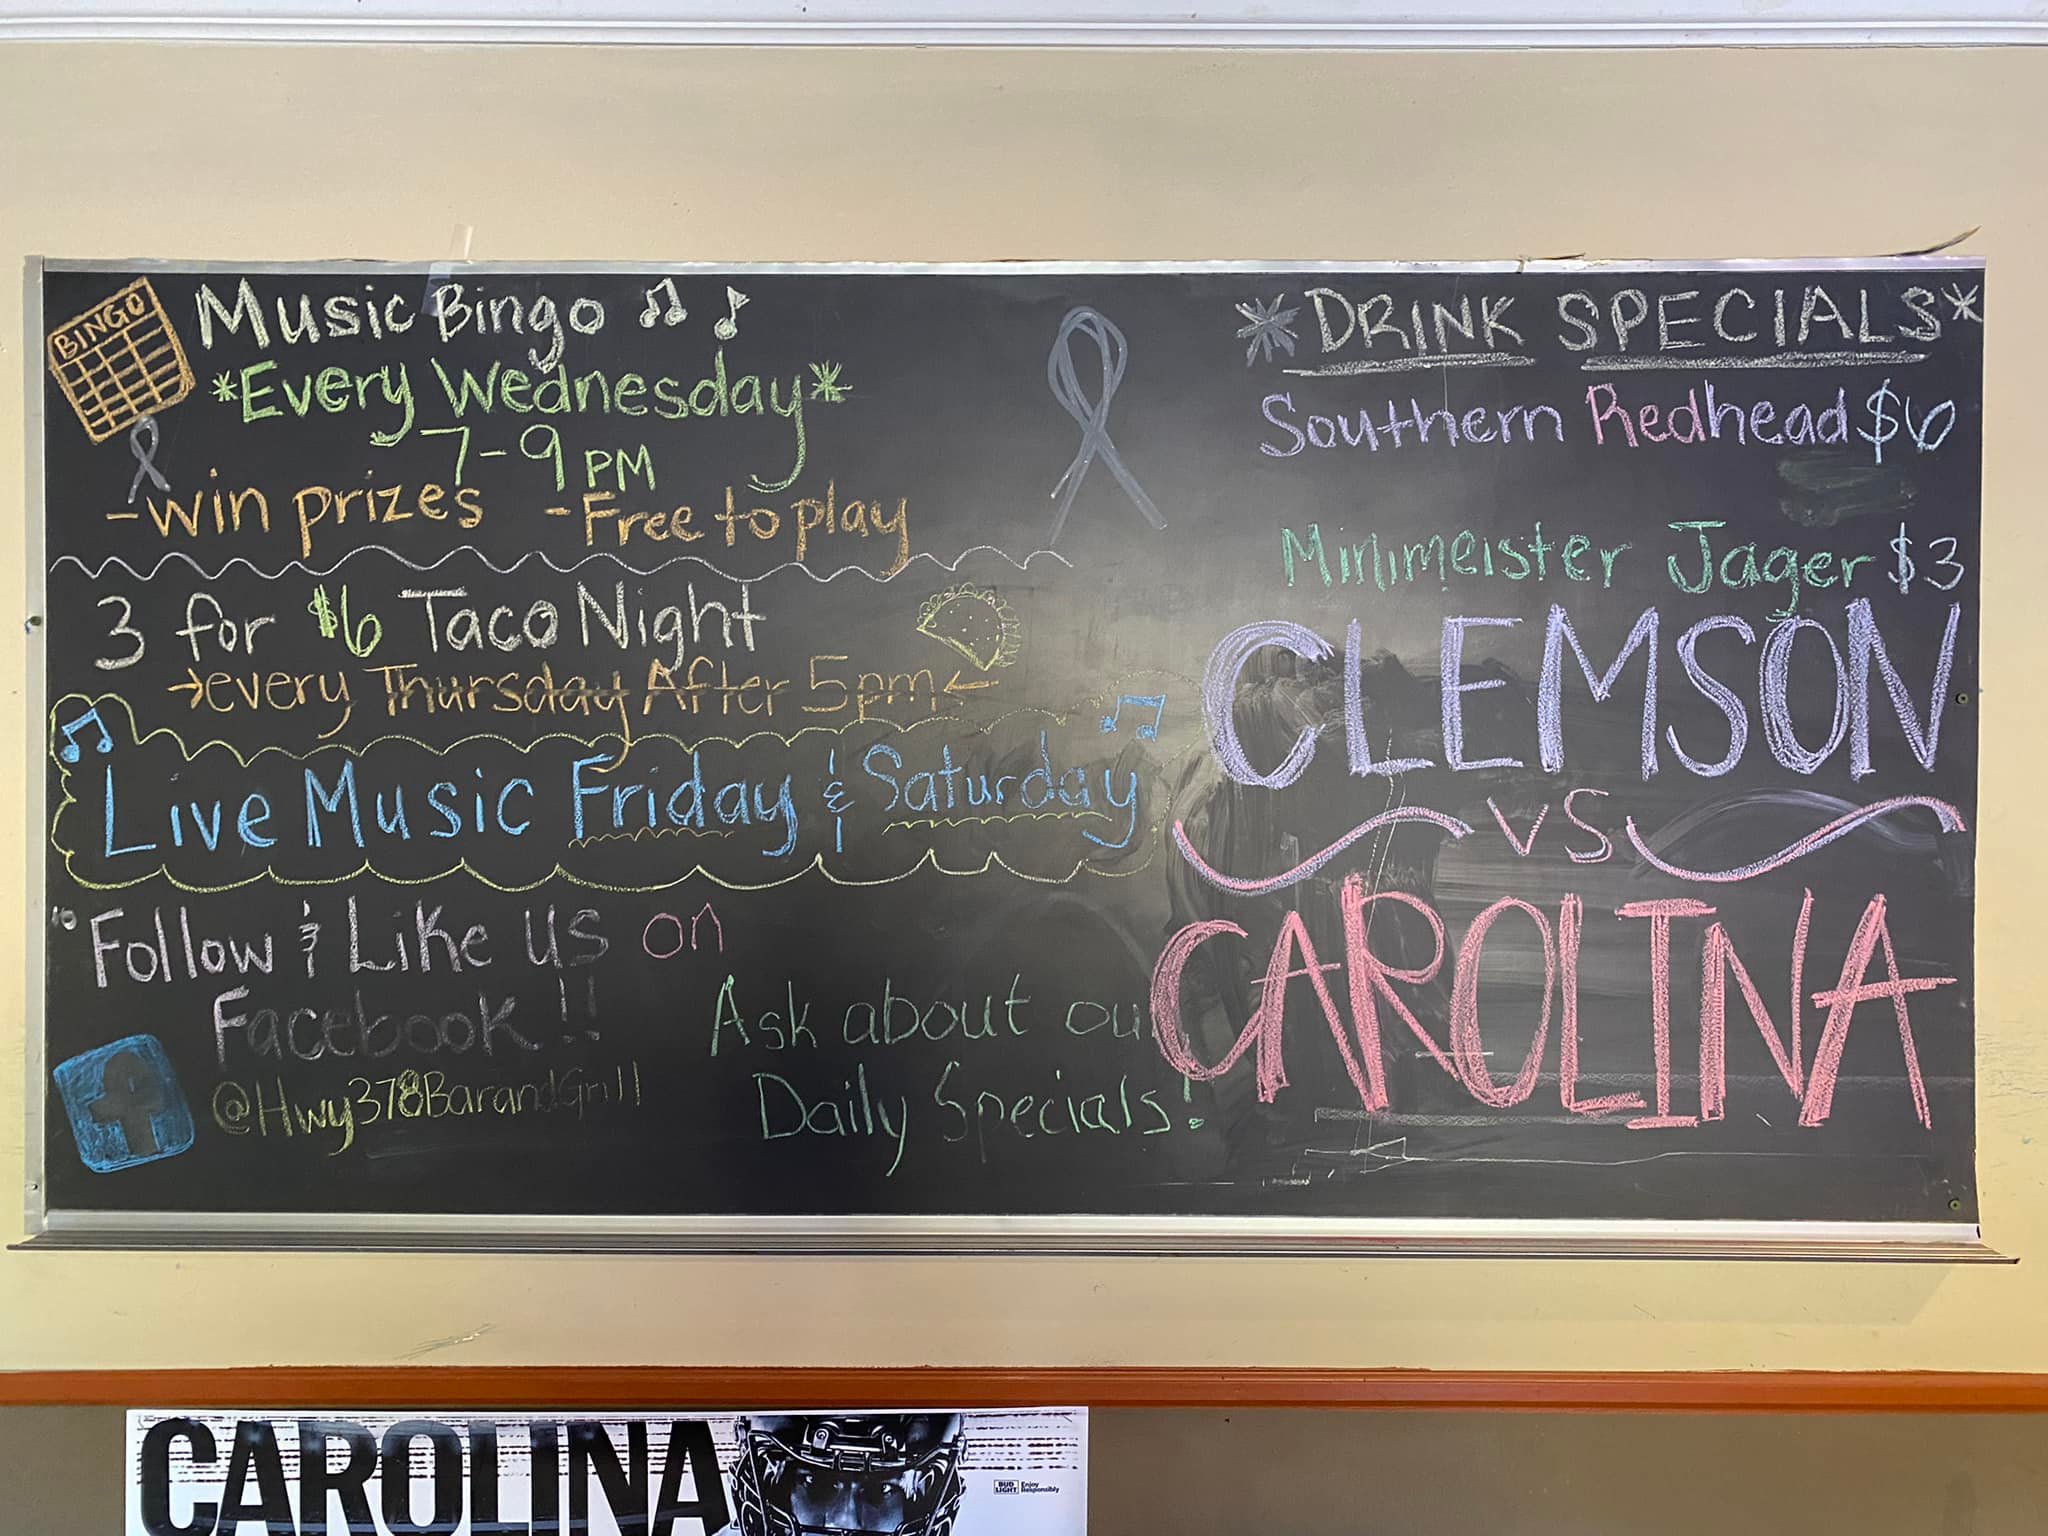 BINGO
Music Bingo
*Every Wednesday*
7-9 PM
-win prizes -Free to play
3 for $6 Taco Night
→every Thursday After 5pm←
Live Music Friday & Saturday
Follow & Like us on
Facebook!!
@Hwy378BarandGrill
f
Ask about ou
Daily Specials!
*DRINK SPECIALS*
Southern Redhead $6
Minimeister Jager $3
CLEMSON
VS
CAROLINA
CAROLINA
BUD LIGHT
Enjoy
Responsibly